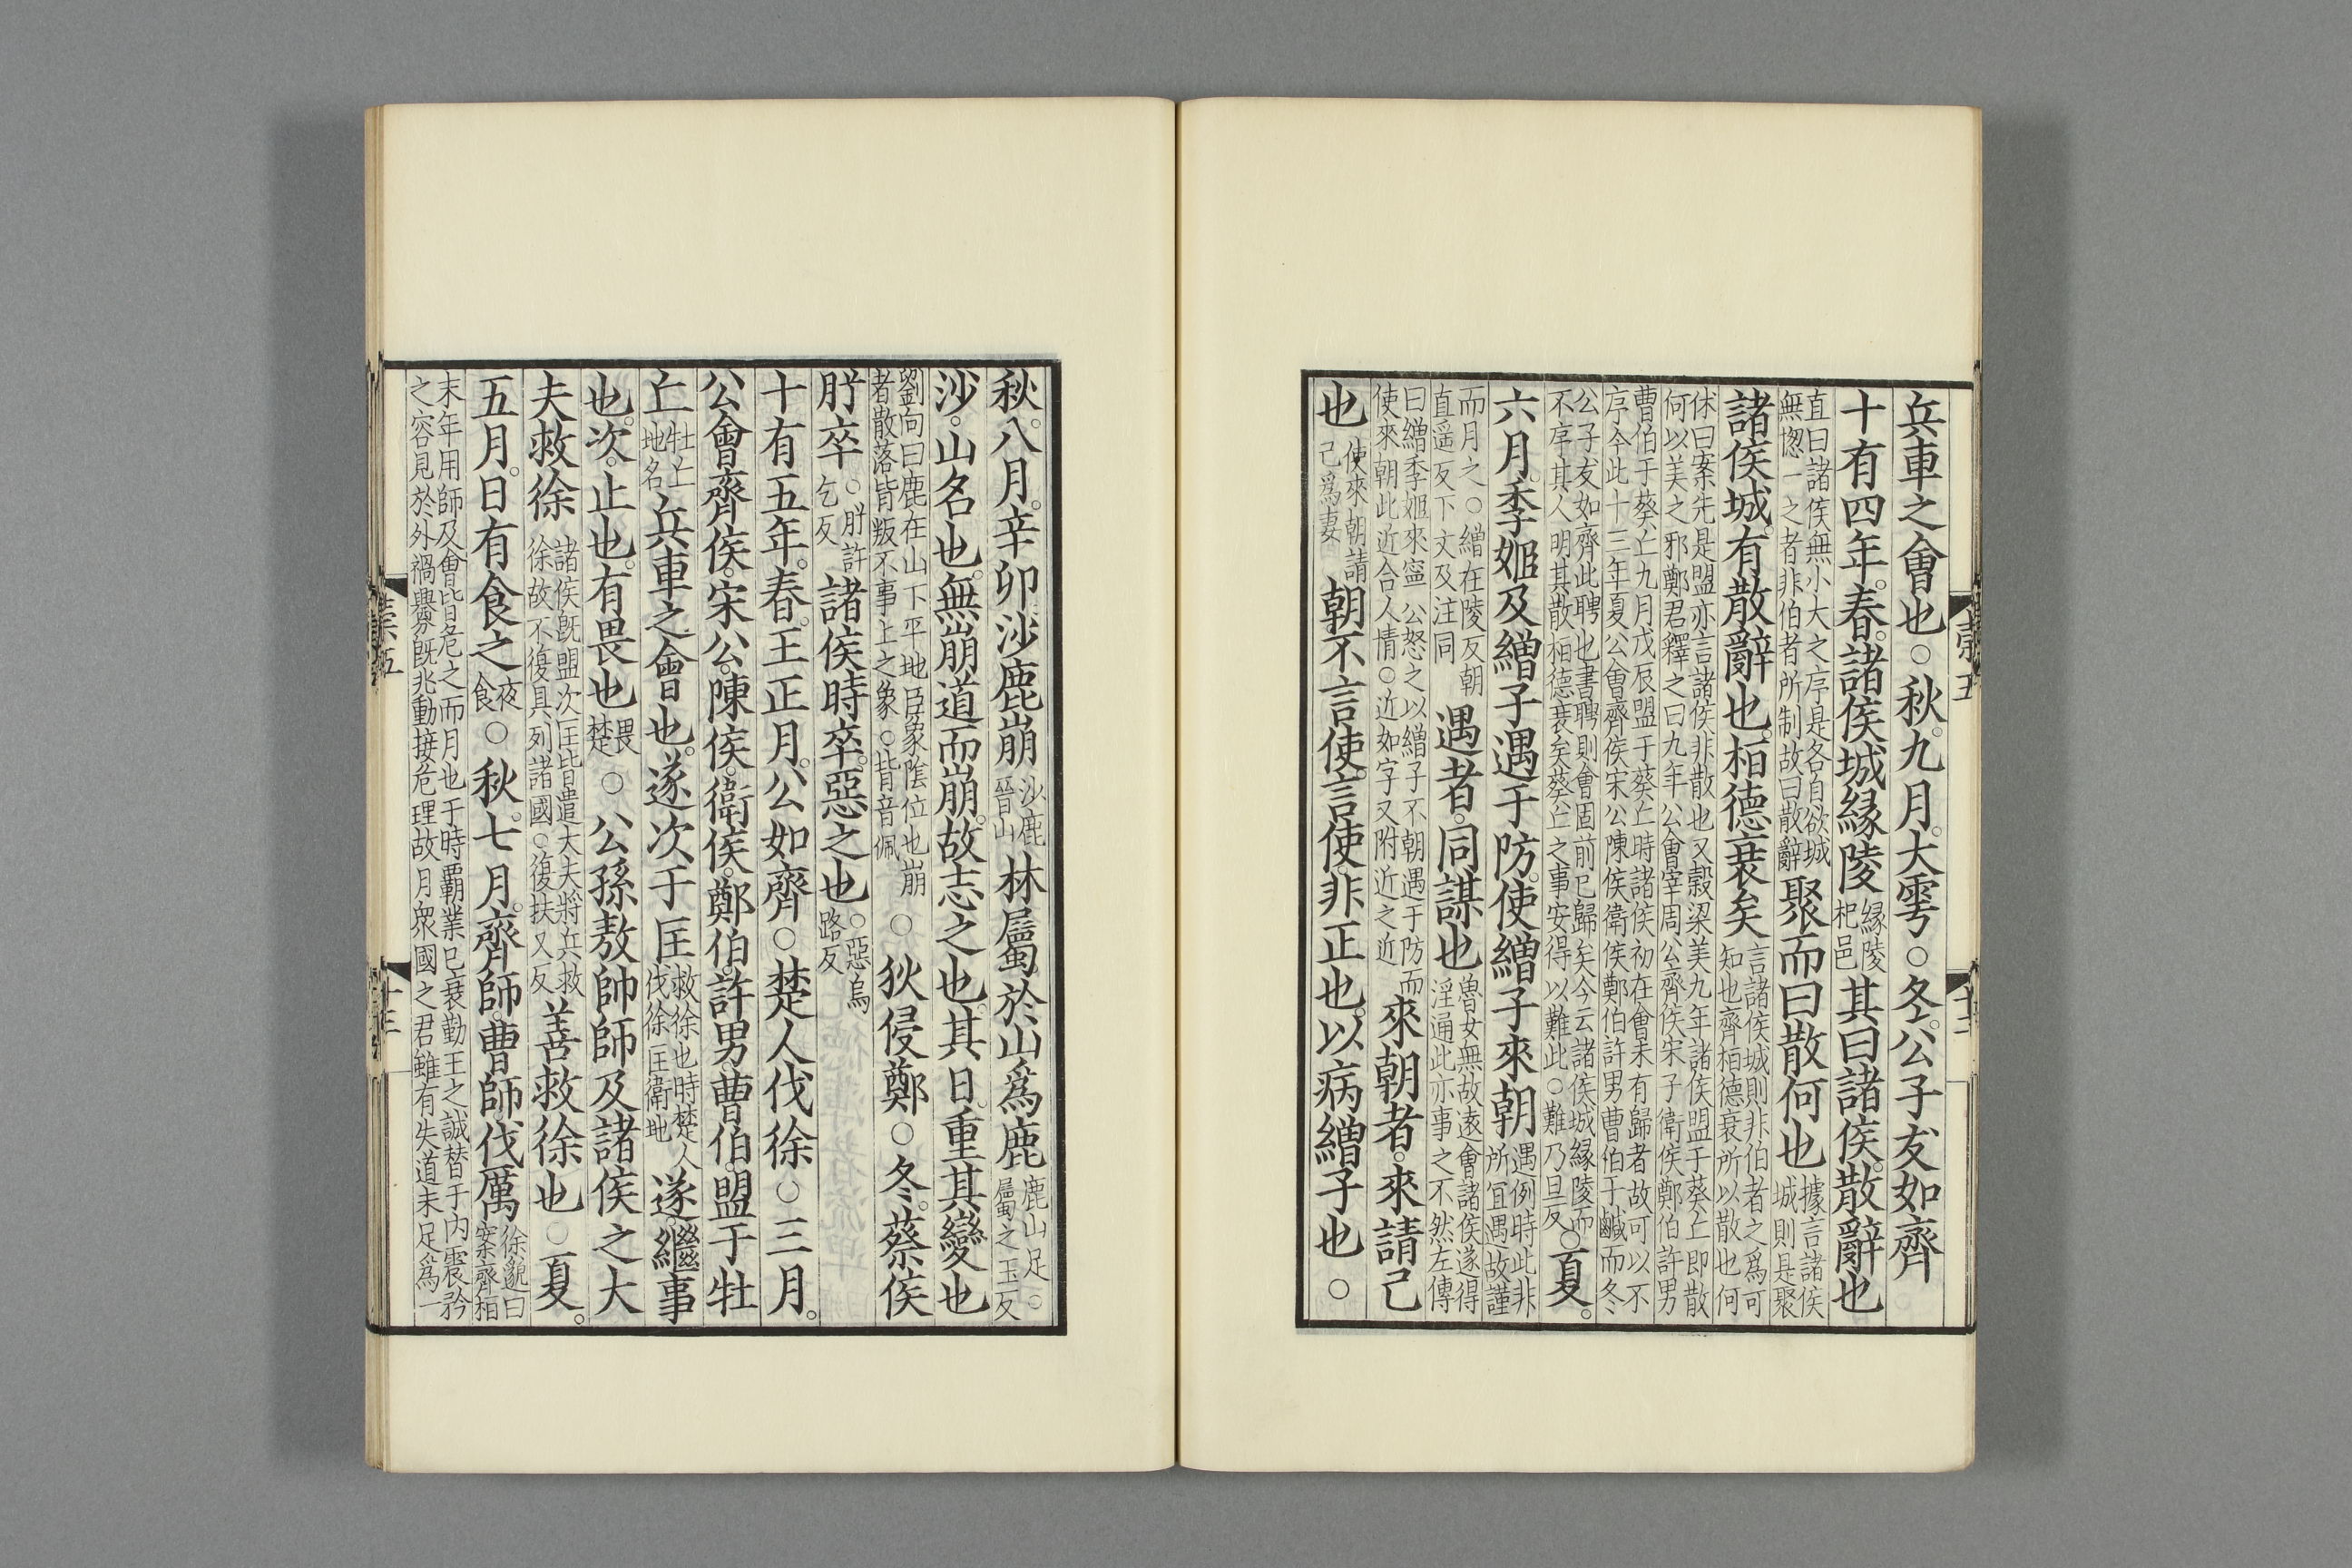 兵車之會也○秋九月大雩○冬公子友如齊
十有四年春諸侯城緣陵緣陵杞邑其曰諸侯散辭也
直曰諸侯無小大之序是各自欲城無揔一之者非伯者所制故曰散辭聚而曰散何也據言諸侯城則是聚
諸侯城有散辭也桓德衰矣言諸侯城則非伯者之爲可知也齊桓德衰所以散也何
休曰案先是盟亦言諸侯非散也又穀梁美九年諸侯盟于葵丘即散何以美之邪鄭君釋之曰九年公會宰周公齊侯宋子衛侯鄭伯許男
曹伯于葵丘九月戊辰盟于葵丘時諸侯初在會未有歸者故可以不序今此十三年夏公會齊侯宋公陳侯衛侯鄭伯許男曹伯于鹹而冬
公子友如齊此聘也書聘則會固前已歸矣今云諸侯城緣陵而不序其人明其散桓德衰矣葵丘之事安得以難此○難乃旦反○夏
六月季姬及繒子遇于防使繒子來朝遇例時此非所宜遇故謹
而月之○繒在陵反朝直遥反下文及注同遇者同謀也魯女無故遠會諸侯遂得淫通此亦事之不然左傳
曰繒季姬來寧公怒之以繒子不朝遇于防而使來朝此近合人情○近如字又附近之近來朝者來請己
也使來朝請己爲妻朝不言使言使非正也以病繒子也○
穀五
十二
秋八月辛卯沙鹿崩沙鹿晉山林屬於山爲鹿鹿山足○屬之玉反
沙山名也無崩道而崩故志之也其日重其變也
劉向曰鹿在山下平地臣象陰位也崩者散落皆叛不事上之象○背音佩○狄侵鄭○冬蔡侯
肸卒○肸許乞反諸侯時卒惡之也○惡烏路反
十有五年春王正月公如齊○楚人伐徐○三月
公會齊侯宋公陳侯衛侯鄭伯許男曹伯盟于牡
丘牡丘地名兵車之會也遂次于匡救徐也時楚人伐徐匡衛地遂繼事
也次止也有畏也畏楚○公孫敖帥師及諸侯之大
夫救徐諸侯既盟次匡皆遣大夫將兵救徐故不復具列諸國○復扶又反善救徐也○夏
五月日有食之夜食○秋七月齊師曹師伐厲徐邈曰案齊桓
末年用師及會皆危之而月也于時霸業已衰勤王之誠替于內震矜之容見於外禍釁既兆動接危理故月衆國之君雖有失道未足爲一
十三